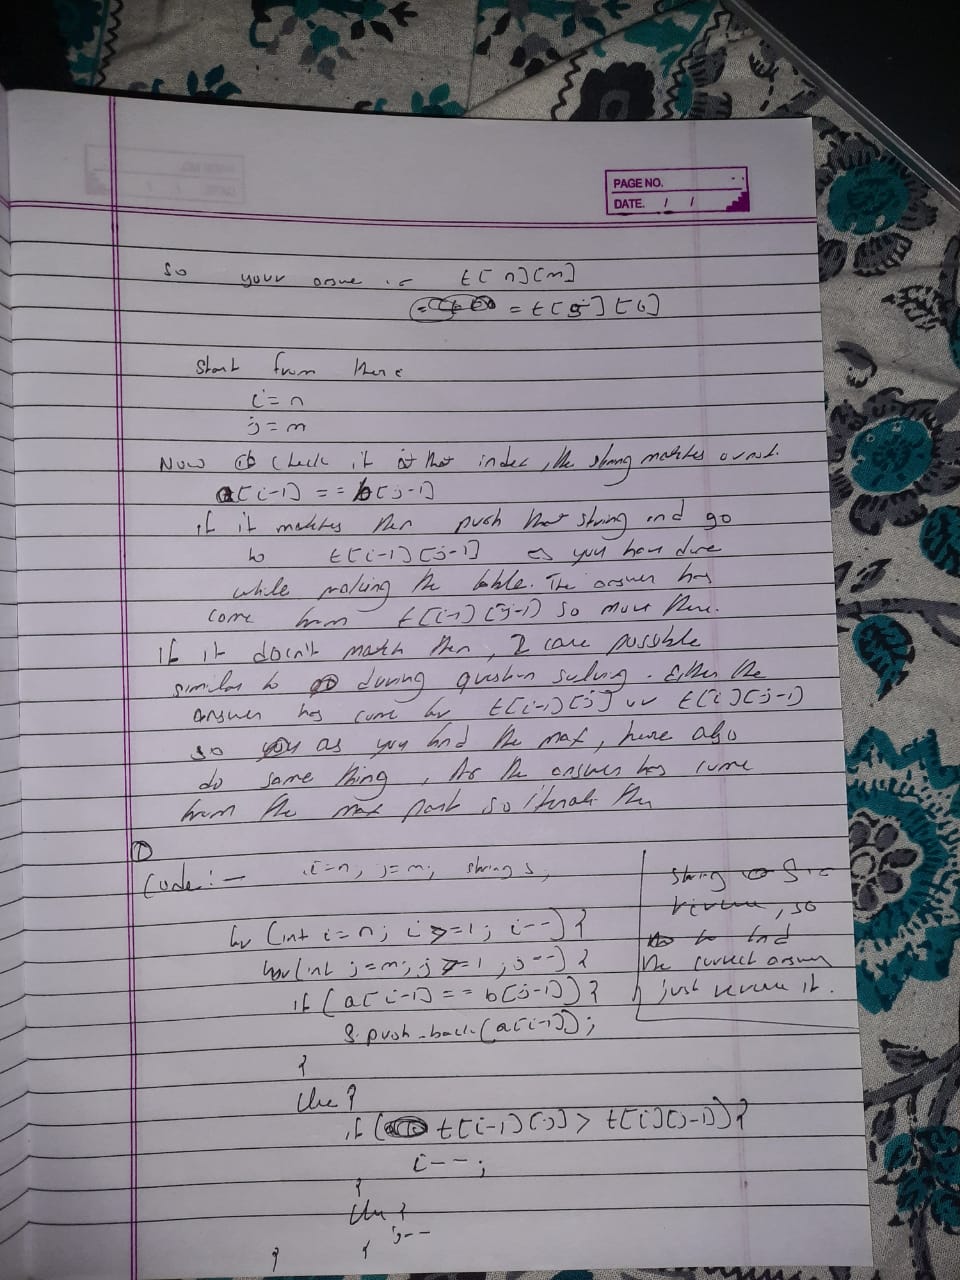 PAGE NO.
DATE. / /
So your t[n][m]
= t[5][6]
Start from there
i=n
j=m
Now check if at that index, the string matches or not.
a[i-1] == b[j-1]
if it matches then push that string and go
to t[i-1][j-1] as you have done
while making the table. The answer has
come from t[i-1][j-1] so move there.
If it doesn't match then, 2 case possible
similar to during question solving. Either the
answer has come by t[i-1][j] or t[i][j-1]
so as you find the max, here also
do same thing, As the answer has come
from the max part so iterate then
①
Code:- i=n, j=m; string s,
for (int i=n; i>=1; i--) {
for (int j=m; j>=1; j--) {
if (a[i-1] == b[j-1]) {
s.push_back(a[i-1]);
}
else {
if ( t[i-1][j] > t[i][j-1]) {
i--;
}
else {
j--
} }
string S is
reverse, so
to find
the correct answer
just reverse it.